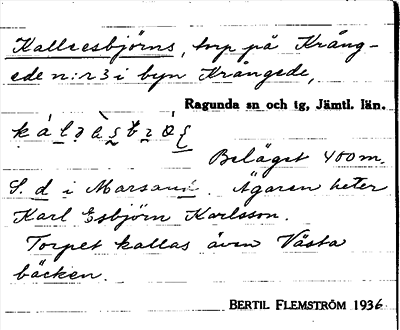 Kallesesbjörns, torp på Krång-
ede n:r 3 i byn Krångede,
Ragunda sn och tg, Jämtl. län.
Beläget 400 m.
S. d i Ägaren heter
Karl Esbjörn Karlsson.
Torpet kallas även Västa
bäcken.
BERTIL FLEMSTRÖM 1936